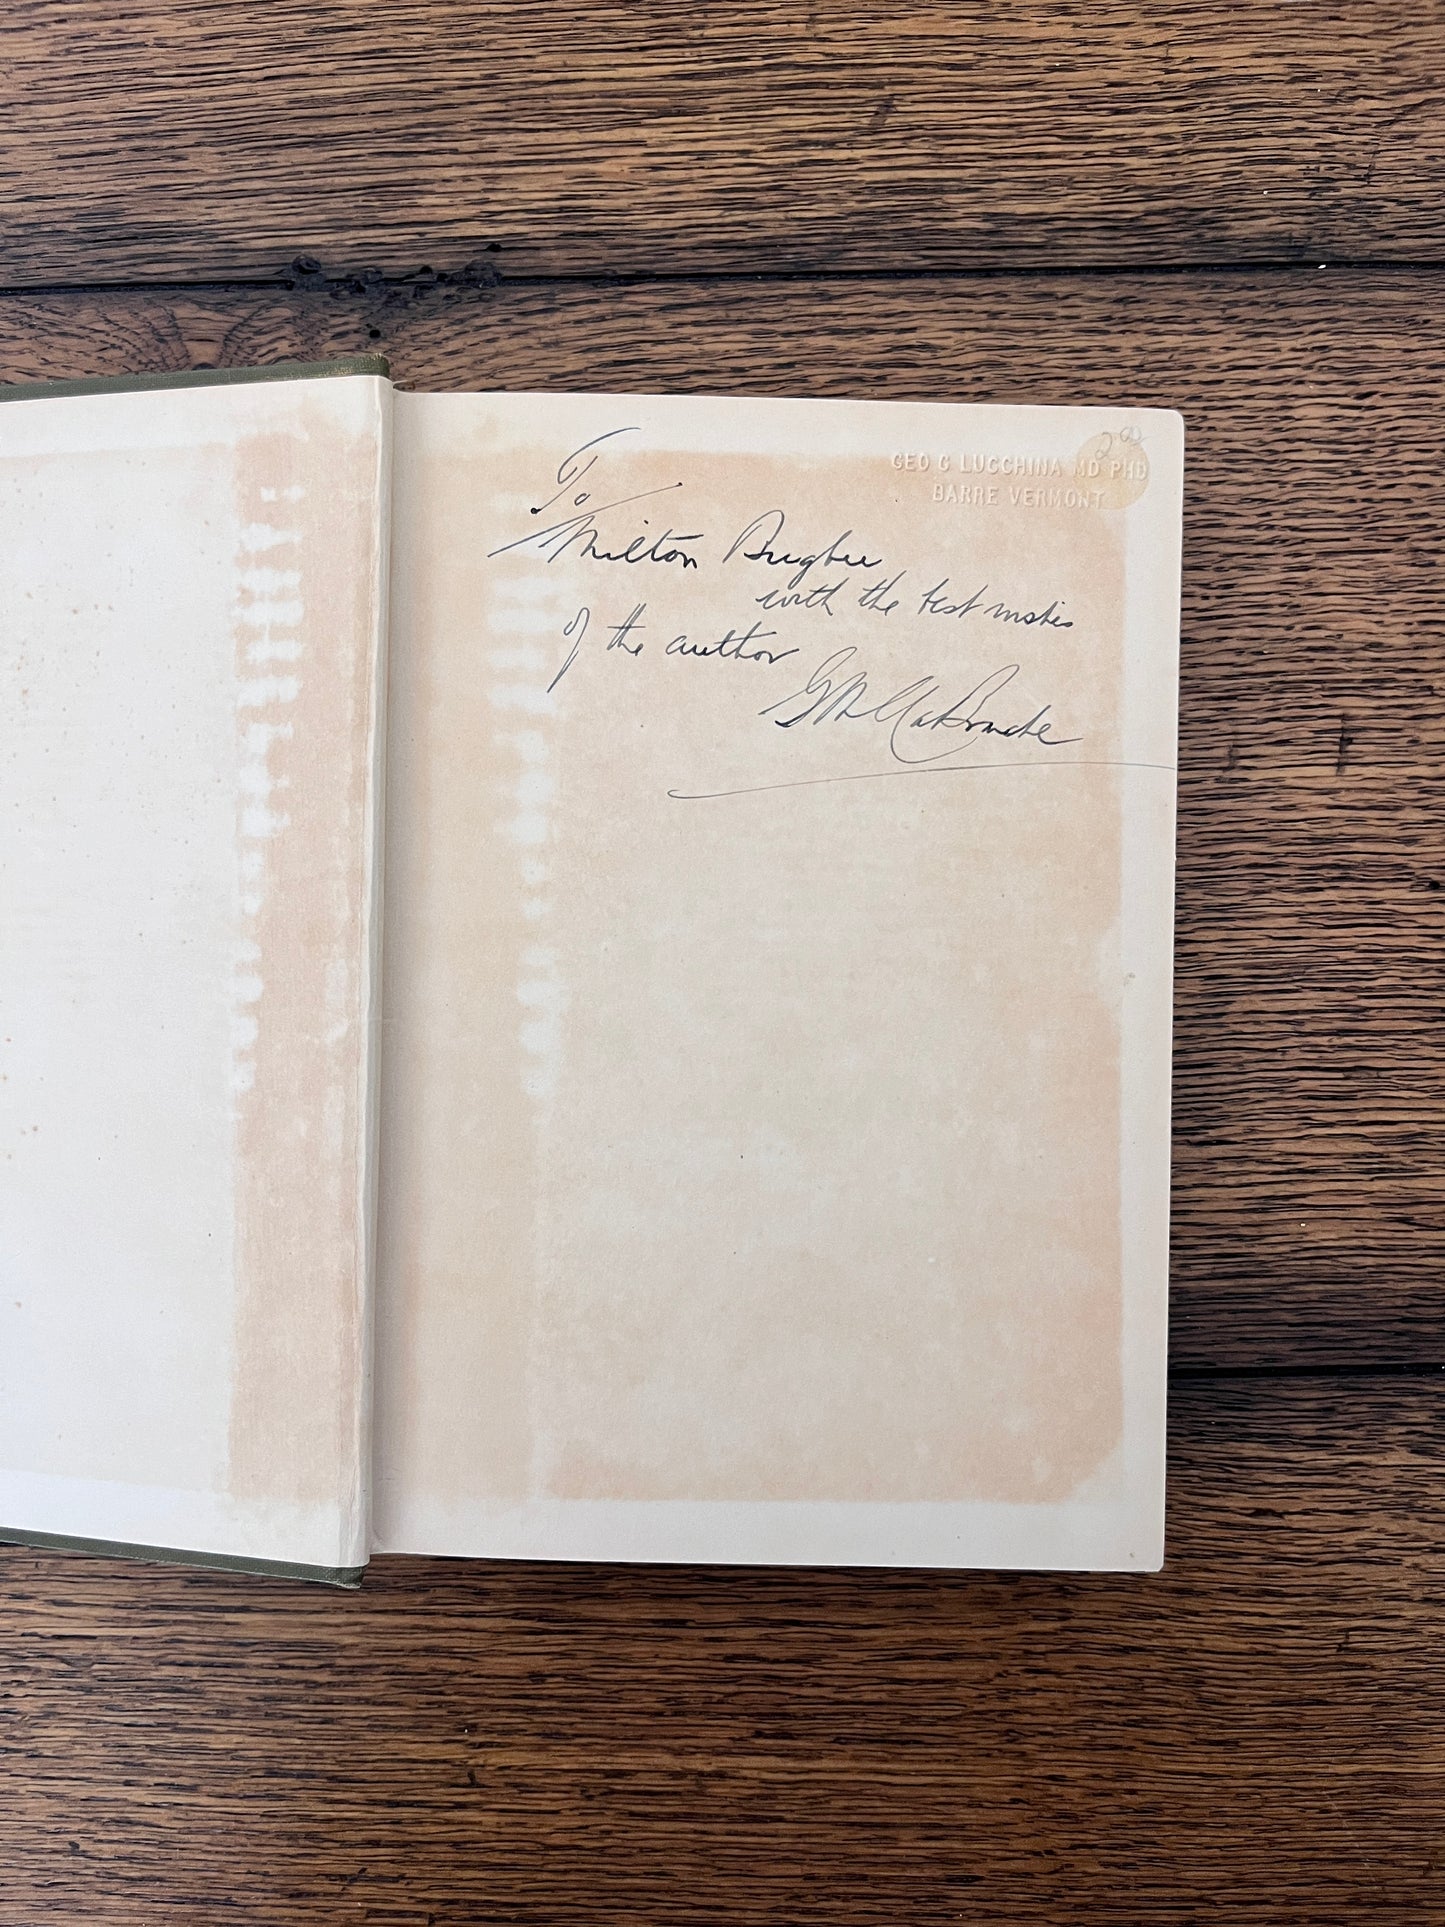 2.00
GEO G LUCCHINA MD PHD
BARRE VERMONT
To
Milton Bugbee
with the best wishes
of the author